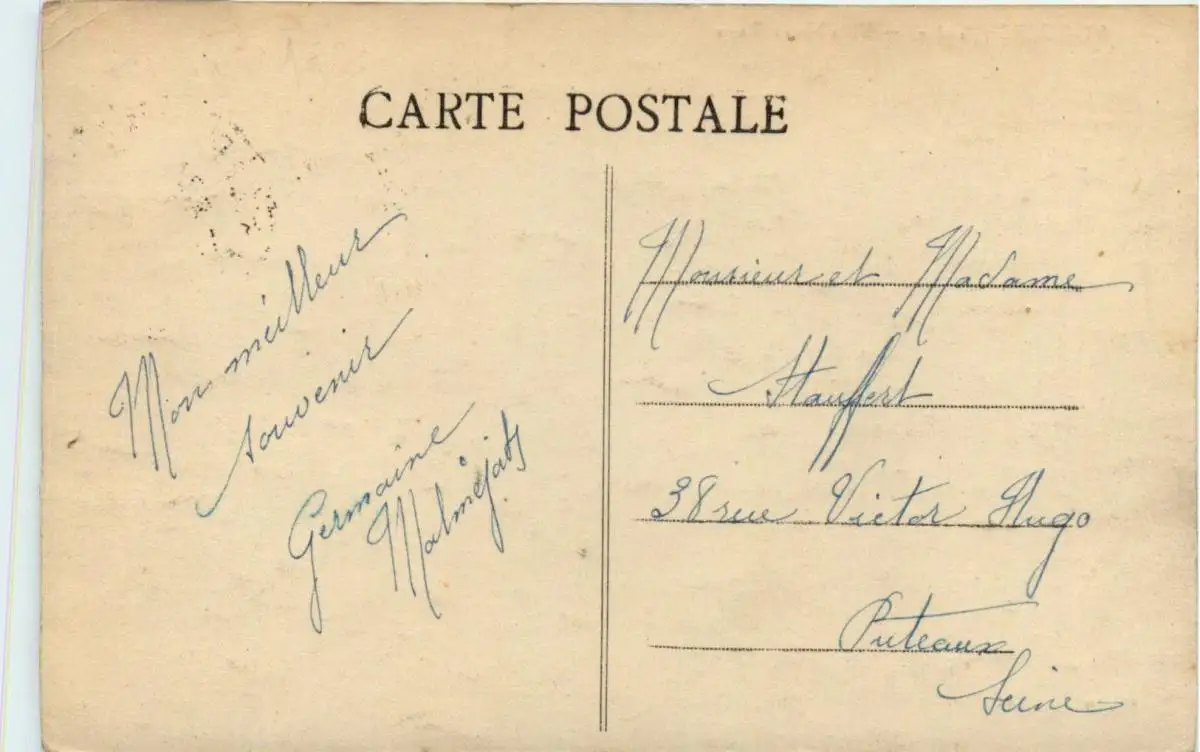 CARTE POSTALE
Mon meilleur
souvenir
Germaine
Malméjats
Monsieur et Madame
Stauffert
38 rue Victor Hugo
Puteaux
Seine